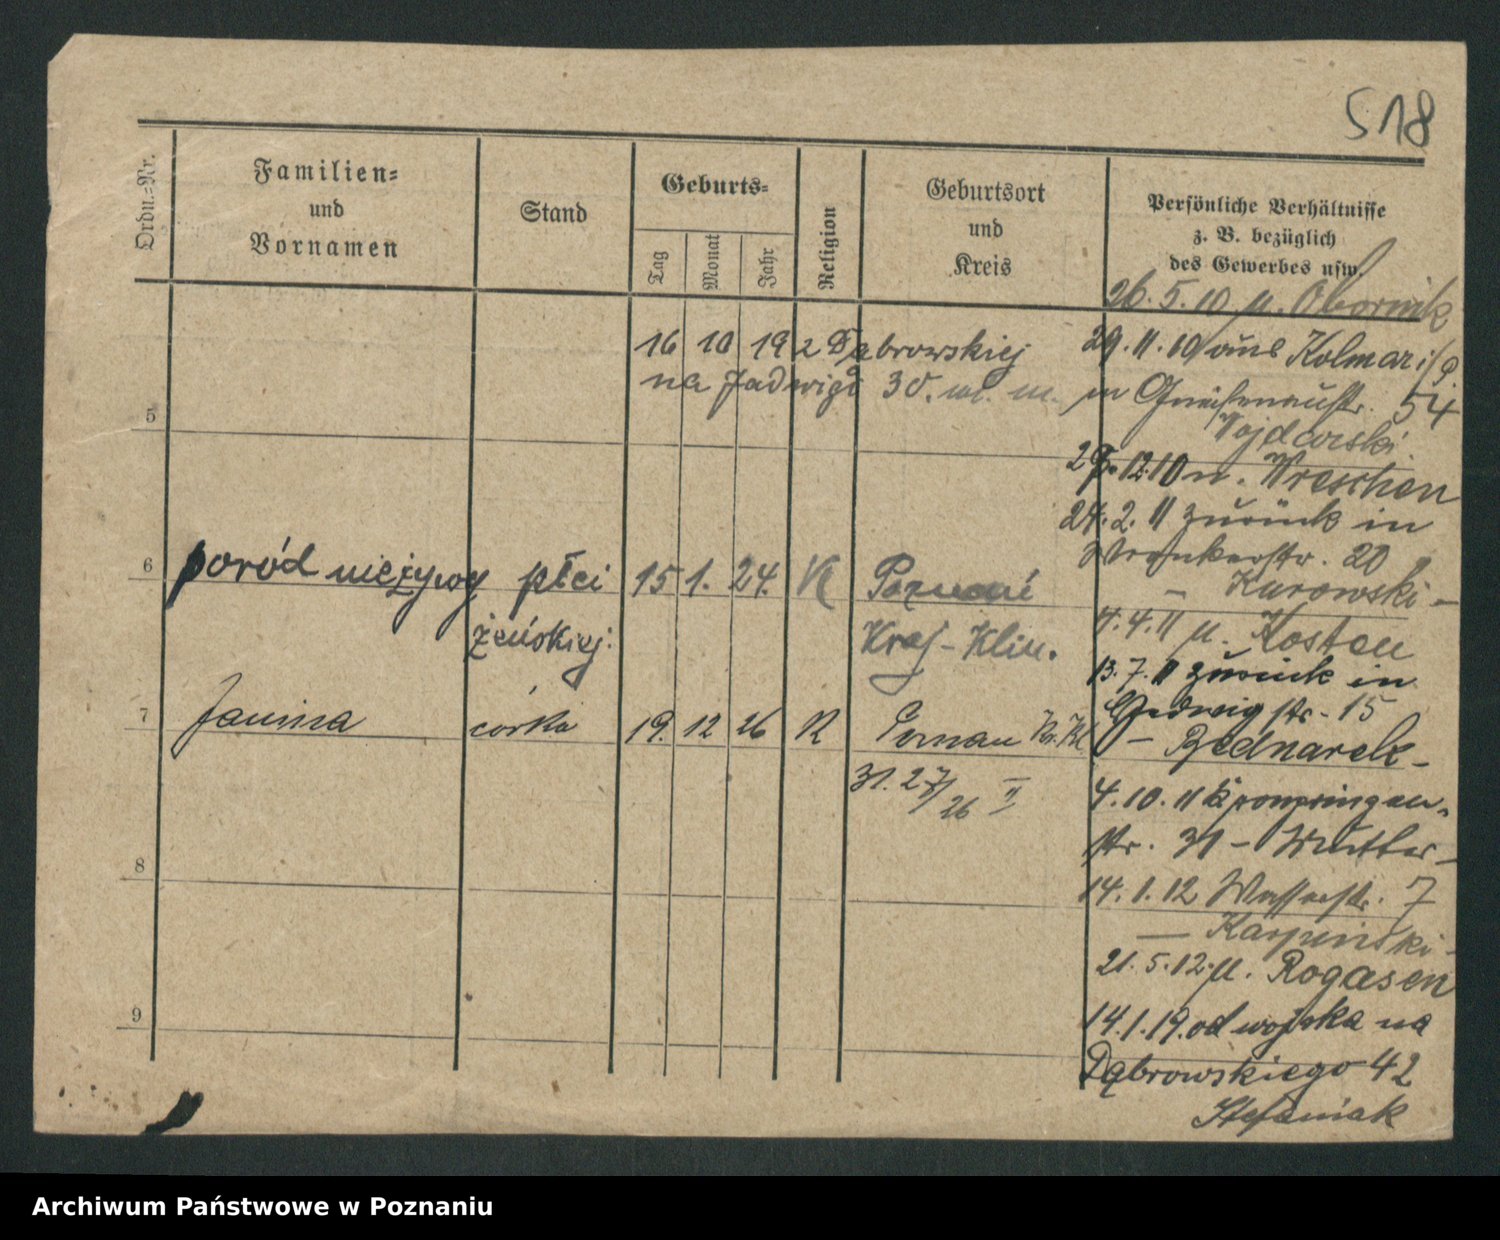 518
Ordn.=Nr.
Familien=
und
Vornamen
Stand
Geburts=
Tag
Monat
Jahr
Religion
Geburtsort
und
Kreis
Persönliche Verhältnisse
z. B. bezüglich
des Gewerbes usw.
26. 5. 10 n. Obornik
16 10 19 z Dąbrowskiej
na Jadwigi 30. wł. m.
29. 11. 10 aus Kolmar i/P.
in Gneisenaustr. 54
Wojdowski
5
12 10 n. Wreschen
24. 2. 11 zurück in
Wronkerstr. 20
– Kurowski –
6
poród nieżywy płci 15 1. 24. K Poznań
żeńskiej. Kraj-Klin.
4. 4. 11 n. Kosten
13. 7. 11 zurück in
Hedwigstr. 15
– Bednarek –
7
Janina córka 19. 12 26 K Poznań Kr. Kl.
31. 27/26 II
4. 10. 11 Kronprinzen-
str. 31 – Mutter –
8
14. 1. 12 Wasserstr. 7
– Karpinski –
21. 5. 12. n. Rogasen
9
14. 1. 19. od wojska na
Dąbrowskiego 42
Stefaniak
Archiwum Państwowe w Poznaniu